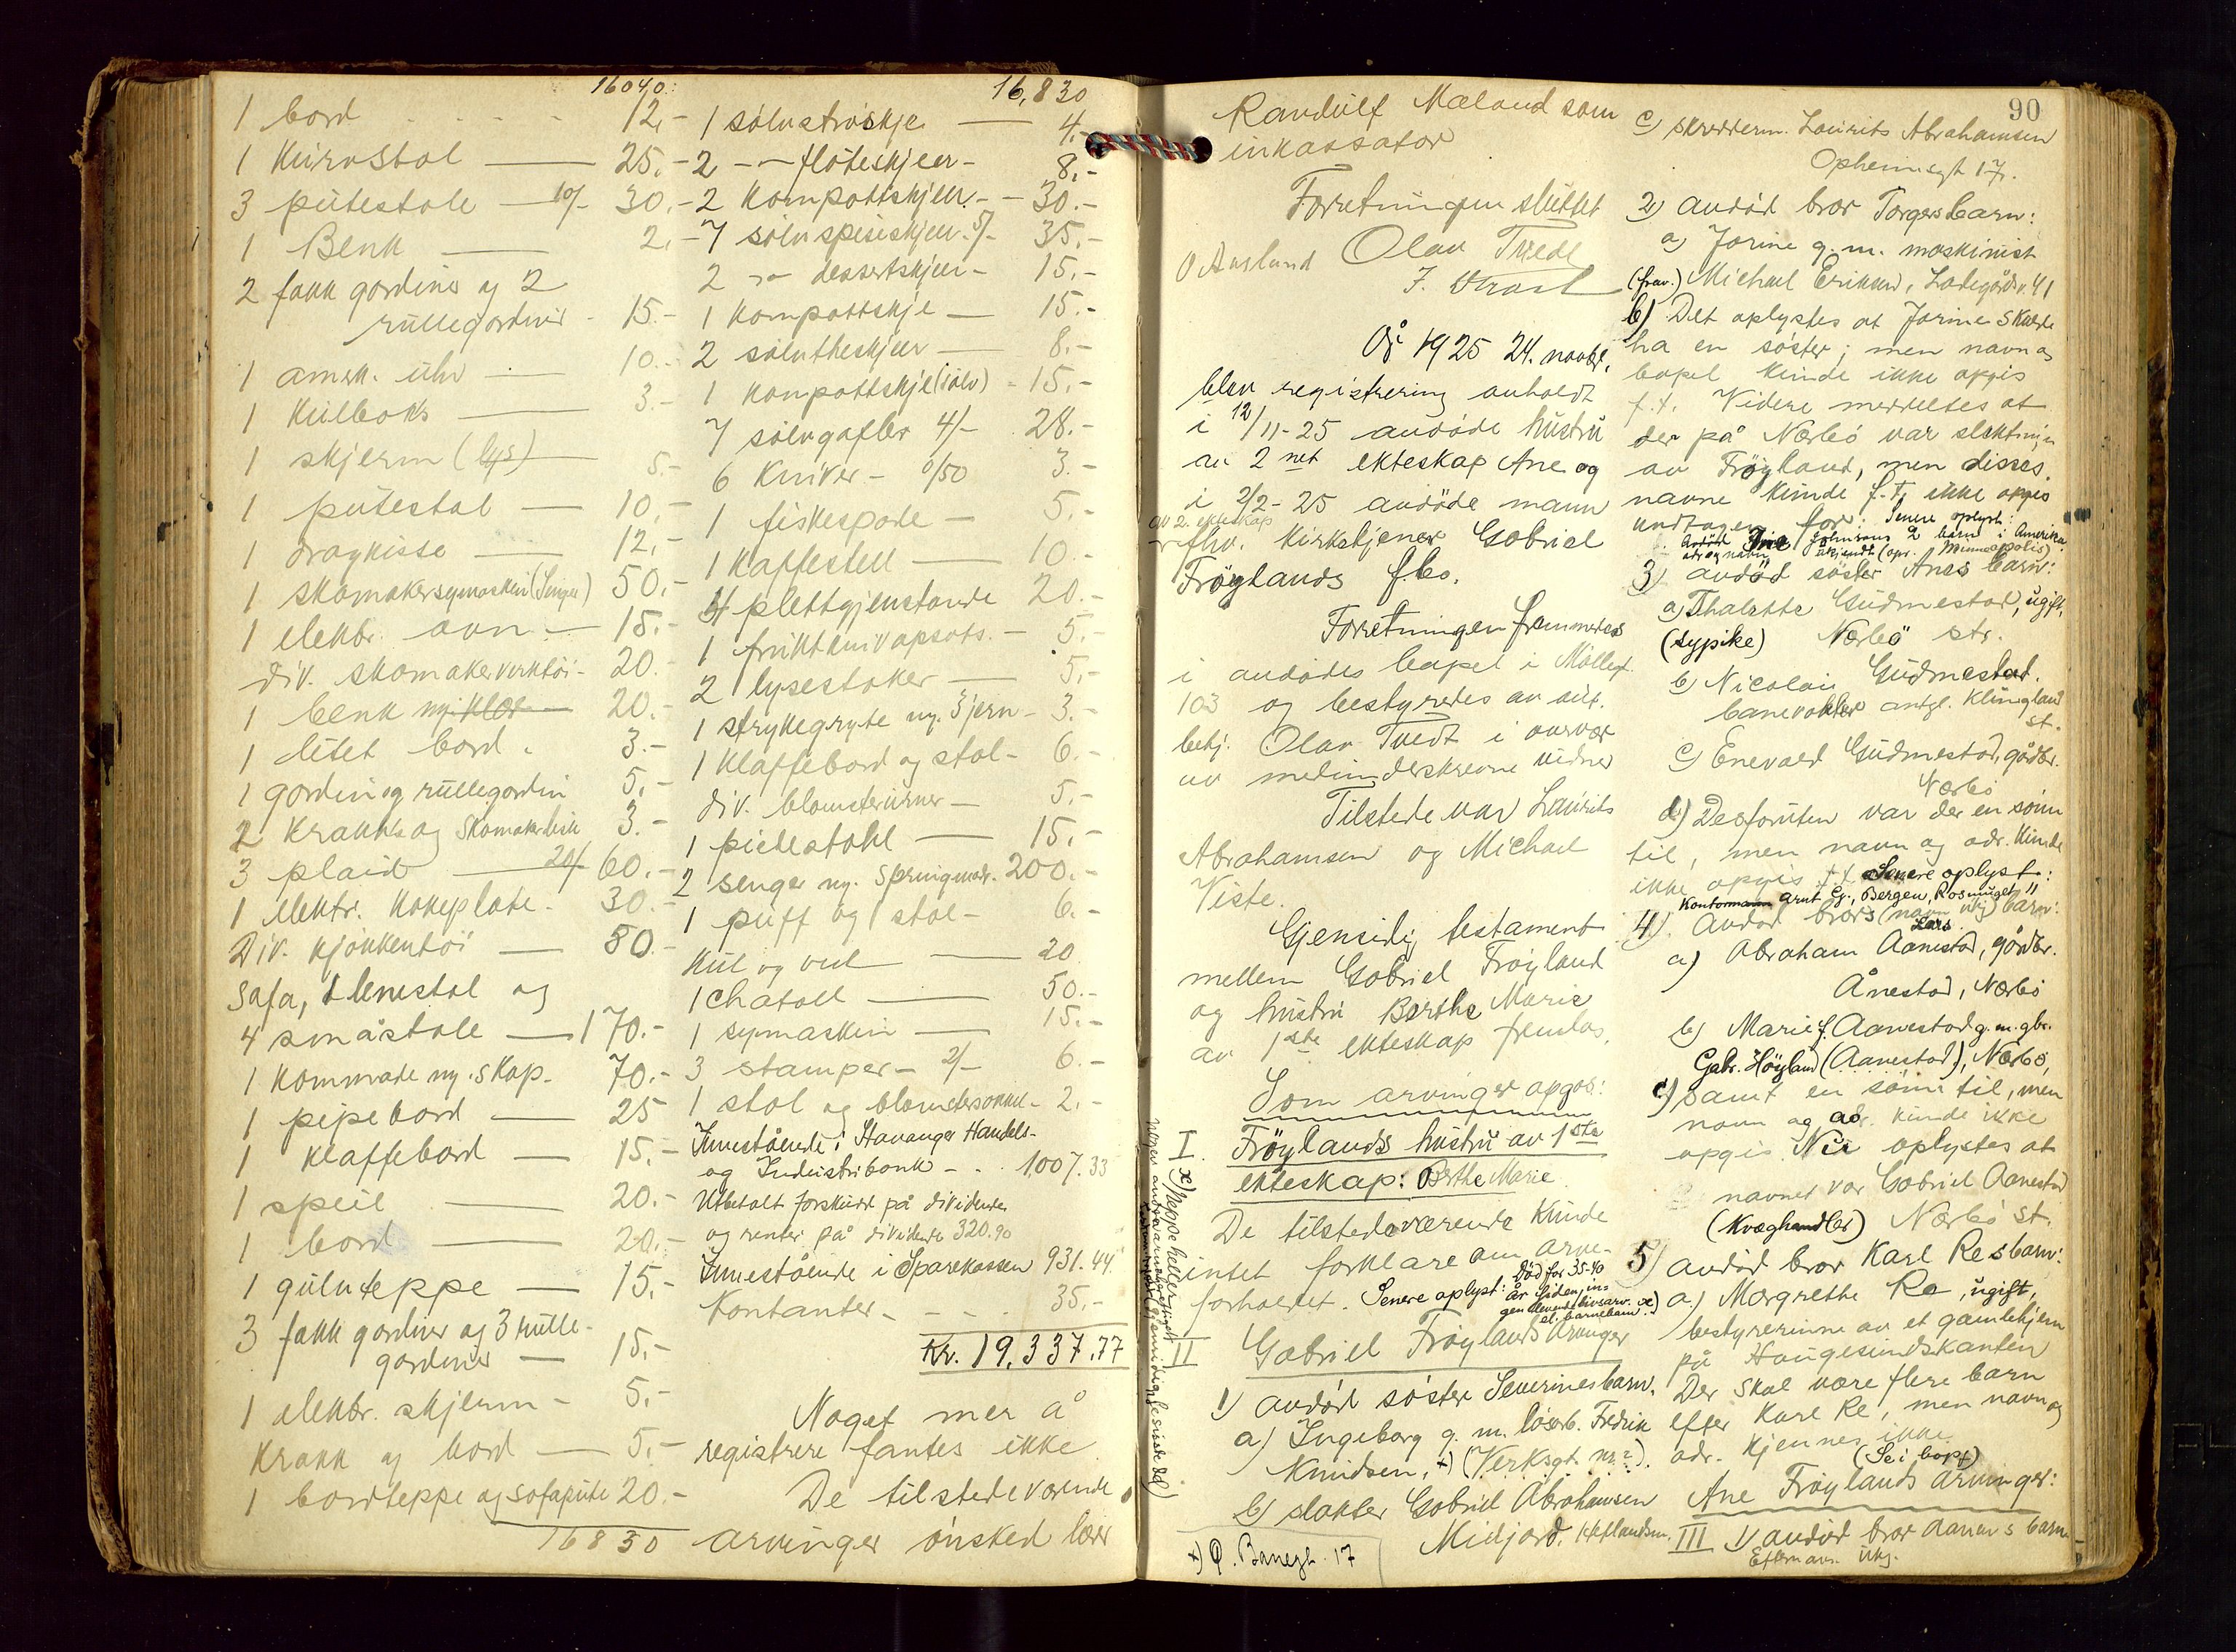 16040.
1 bord 12,-
1 Kurvstol 25.-
3 putestole 10/- 30.-
1 Benk 2,-
2 fakk gardiner og 2
rullegardiner - 15.-
1 amrk. uhr 10.-
1 Kulboks 3.-
1 skjerm (lys) 5.-
1 putestol 10.-
1 dragkisse 12.-
1 skomakersymaskin (Singer) 50.-
1 elektr. ovn 15.-
Div. skomakerverktöi - 20.-
1 benk 20.-
1 litet bord. 3.-
1 gardin og rullegardin 5.-
2 krakk og skomakerdisk 3.-
3 plaid 20/- 60.-
1 elektr. kokeplate. 30.-
Div. kjökkentöi 50.-
Sofa, 1 lenestol og
4 småstole 170.-
1 Kommode m. skap. 70.-
1 pipebord 25
1 klaffebord 15.-
1 speil 20.-
1 bord 20.-
1 gulvteppe 15.-
3 fakk gardiner og 3 rulle-
gardiner 15.-
1 elektr. skjerm - 5.-
Krakk og bord 5.-
1 bordteppe og sofapute 20.-
16830
16,830
1 sölvströskje 4.-
2 -"- flöteskjeer - 8.-
2 Kompottskjeer - 30.-
7 sölvspiseskjeer 5/- 35.-
2 -"- dessertskjeer - 15.-
1 Kompottskje 15.-
2 sölvtheskjeer 8.-
1 Kompottskje (sölv) - 15.-
7 sölvgafler 4/- 28.-
6 Kniver - 0/50 3.-
1 fiskespade - 5.-
1 Kaffestell 10.-
4 plettgjenstande 20.-
1 fruktknivopsats. - 5.-
2 lysestaker 5.-
1 strykegryte m. 3 jern - 3.-
1 Klaffebord og stol - 6.-
Div. blomsterurner - 5.-
1 pidestahl 15.-
2 senger m. Springmadr. 200.-
1 puff og 1 stol - 6.-
Kul og ved 20
1 chatoll 50.-
1 symaskin 15.-
3 stamper - 2/- 6.-
1 stol og blomstersökke - 2.-
Innestående i Stavanger Handels-
og Industribank - . . 1,007.33
Utbetalt forskudd på dividende
og renter på dividende 320.90
Innestående i Sparekassen 931.44
Kontanter - - - . 35.-
Kr. 19,337.77
Noget mer å
registrere fantes ikke
De tilstedeværende
arvinger önsked lærer
Randulf Mæland som
inkassator
Forretningen sluttet
O Ausland Olav Tvedt
År 1925 24. novbr.
blev registrering avholdt
i 12/11-25 avdöde hustru
av 2 net ekteskap Ane og
i 2/2-25 avdöde mann
av 2. ekteskap
fhv. Kirketjener Gabriel
Fröylands f.bo.
Forretningen fremmedes
i avdödes bopel i Möllegt.
103 og bestyredes av aut.
betj. Olav Tvedt i overvær
av medunderskrevne vidner
Tilstede var Laurits
Abrahamsen og Michael
Viste.
Gjensidig testament
mellem Gabriel Fröyland
og hustru Berthe Marie
av 1ste ekteskap fremlas.
Som arvinger opgos:
I. Fröylands hustru av 1ste
ekteskap: Berthe Marie
De tilstedeværende kunde
intet forklare om arve-
forholdet. Senere oplyst: Död for 35-40
år siden, in-
gen levende livsarv.
el. barnebarn. x)
II Gabriel Fröylands Arvinger
1) avdöd söster Severines barn.
a) Ingeborg g. m. löserb. Fredrik
Knudsen, +) (Verksgt. nr. ?).
b) slakter Gabriel Abrahamsen
Midjord, Hetlandsm.
+) Ö. Banegt. 17
90
c) skrædderm. Laurits Abrahamsen
Opheimsgt 17.
2) avdöd bror Torgers barn:
a) Jorine g. m. maskinist
(frav.) Michael Eriksen, Ladegårdsv. 41
b) Det oplystes at Jorine skulde
ha en söster; men navn og
bopel kunde ikke opgis
f.t. Videre meddeltes at
der på Nærbö var slektninger
av Fröyland, men disses
navne kunde f.t. ikke opgis
undtagen for: Senere oplyst:
2 barn i Amerika
adr og navn ukjendt (opr. Minneapolis)
3) avdöd söster Anes barn:
a) Thalette Gudmestad, ugift,
(sypike) Nærbö st.
b) Nicolai Gudmestad.
banevokter antgl. Klungland
st.
c) Enevald Gudmestad, gårdbr.
Nærbö
d) Desforuten var der en sönn
til, men navn og adr. kunde
ikke opgis f.t. Senere oplyst:
Kontormann Arnt Eg., Bergen, Rosmuget 11
4). Avdöd brors (navn ukj) barn:
Lars
a) Abraham Aanestad, gårdbr.
Ånestad, Nærbö
b) Marie f. Aanestad g. m. gbr.
Gabr. Höyland (Aanestad), Nærbö,
c) Samt en sönn til, men
navn og adr. kunde ikke
opgis. Nu oplystes at
navnet var Gabriel Aanestad
(Kvæghandler) Nærbö st.
5) avdöd bror Karl Res barn:
a.) Margrethe Re, ugift,
bestyrerinne av et gamlehjem
på Haugesundskanten
Der skal være flere barn
efter Karl Re, men navn og
adr. kjennes ikke.
(Se i bopt)
Ane Fröylands arvinger:
III 1) avdöd bror Aanens barn
Efternavn ukj.